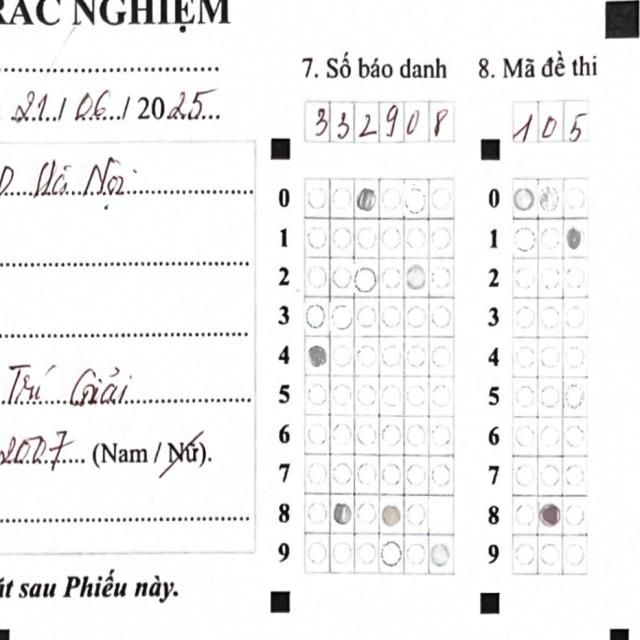 RẮC NGHIỆM
21 / 06 / 2025
Hà Nội
Trí Giải
2007 (Nam / Nữ).
ặt sau Phiếu này.
7. Số báo danh
332908
0
1
2
3
4
5
6
7
8
9
8. Mã đề thi
105
0
1
2
3
4
5
6
7
8
9